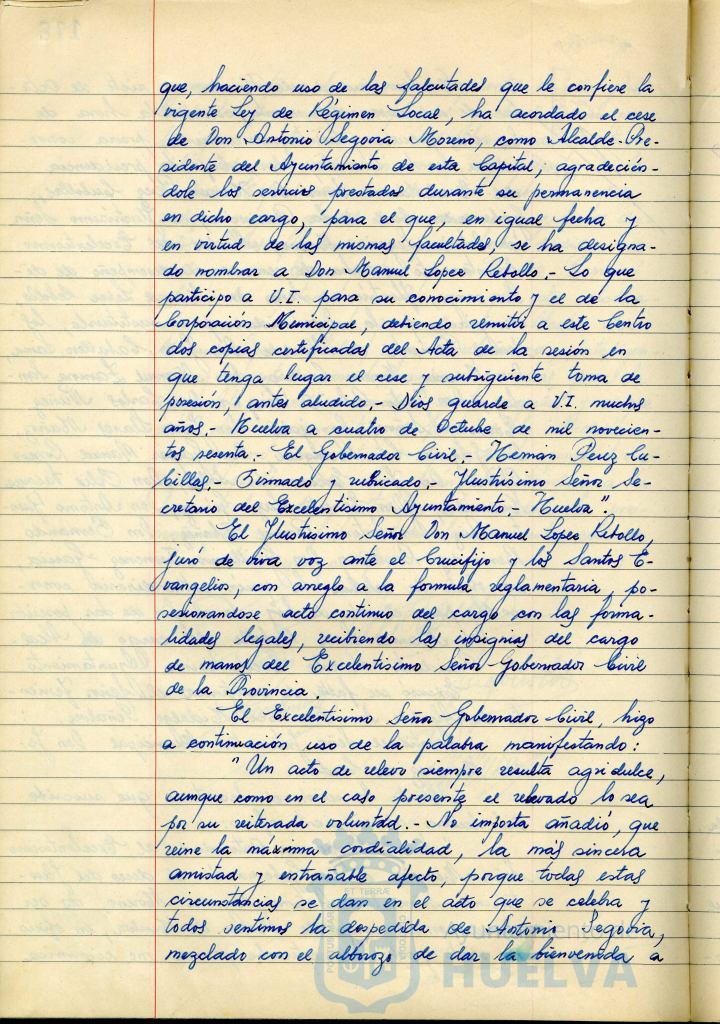 que, haciendo uso de las falcutades que le confiere la
vigente Ley de Régimen Local, ha acordado el cese
de Don Antonio Segovia Moreno, como Alcalde-Pre-
sidente del Ayuntamiento de esta Capital; agradecién-
dole los servicios prestados durante su permanencia
en dicho cargo, para el que, en igual fecha y
en virtud de las mismas facultades, se ha designa-
do nombrar a Don Manuel Lopez Rebollo.- Lo que
participo a V.I. para su conocimiento y el de la
Corporación Municipal, debiendo remitir a este Centro
dos copias certificadas del Acta de la sesión en
que tenga lugar el cese y subsiguiente toma de
posesión, antes aludido.- Dios guarde a V.I. muchos
años.- Huelva a cuatro de Octubre de mil novecien-
tos sesenta.- El Gobernador Civil.- Hernán Perez Cu-
billas.- Firmado y rubricado.- Ilustrísimo Señor Se-
cretario del Excelentisimo Ayuntamiento.- Huelva".
El Ilustrisimo Señor Don Manuel Lopez Rebollo,
juró de viva voz ante el Crucifijo y los Santos E-
vangelios, con arreglo a la formula reglamentaria, po-
sesionandose acto continuo del cargo con las forma-
lidades legales, recibiendo las insignias del cargo
de manos del Excelentisimo Señor Gobernador Civil
de la Provincia.
El Excelentisimo Señor Gobernador Civil, hizo
a continuación uso de la palabra manifestando:
"Un acto de relevo siempre resulta agridulce,
aunque como en el caso presente el relevado lo sea
por su reiterada voluntad.- No importa añadió, que
reine la máxima cordialidad, la más sincera
amistad y entrañable afecto, porque todas estas
circunstancias se dan en el acto que se celebra y
todos sentimos la despedida de Antonio Segovia,
mezclado con el alborozo de dar la bienvenida a
HUELVA